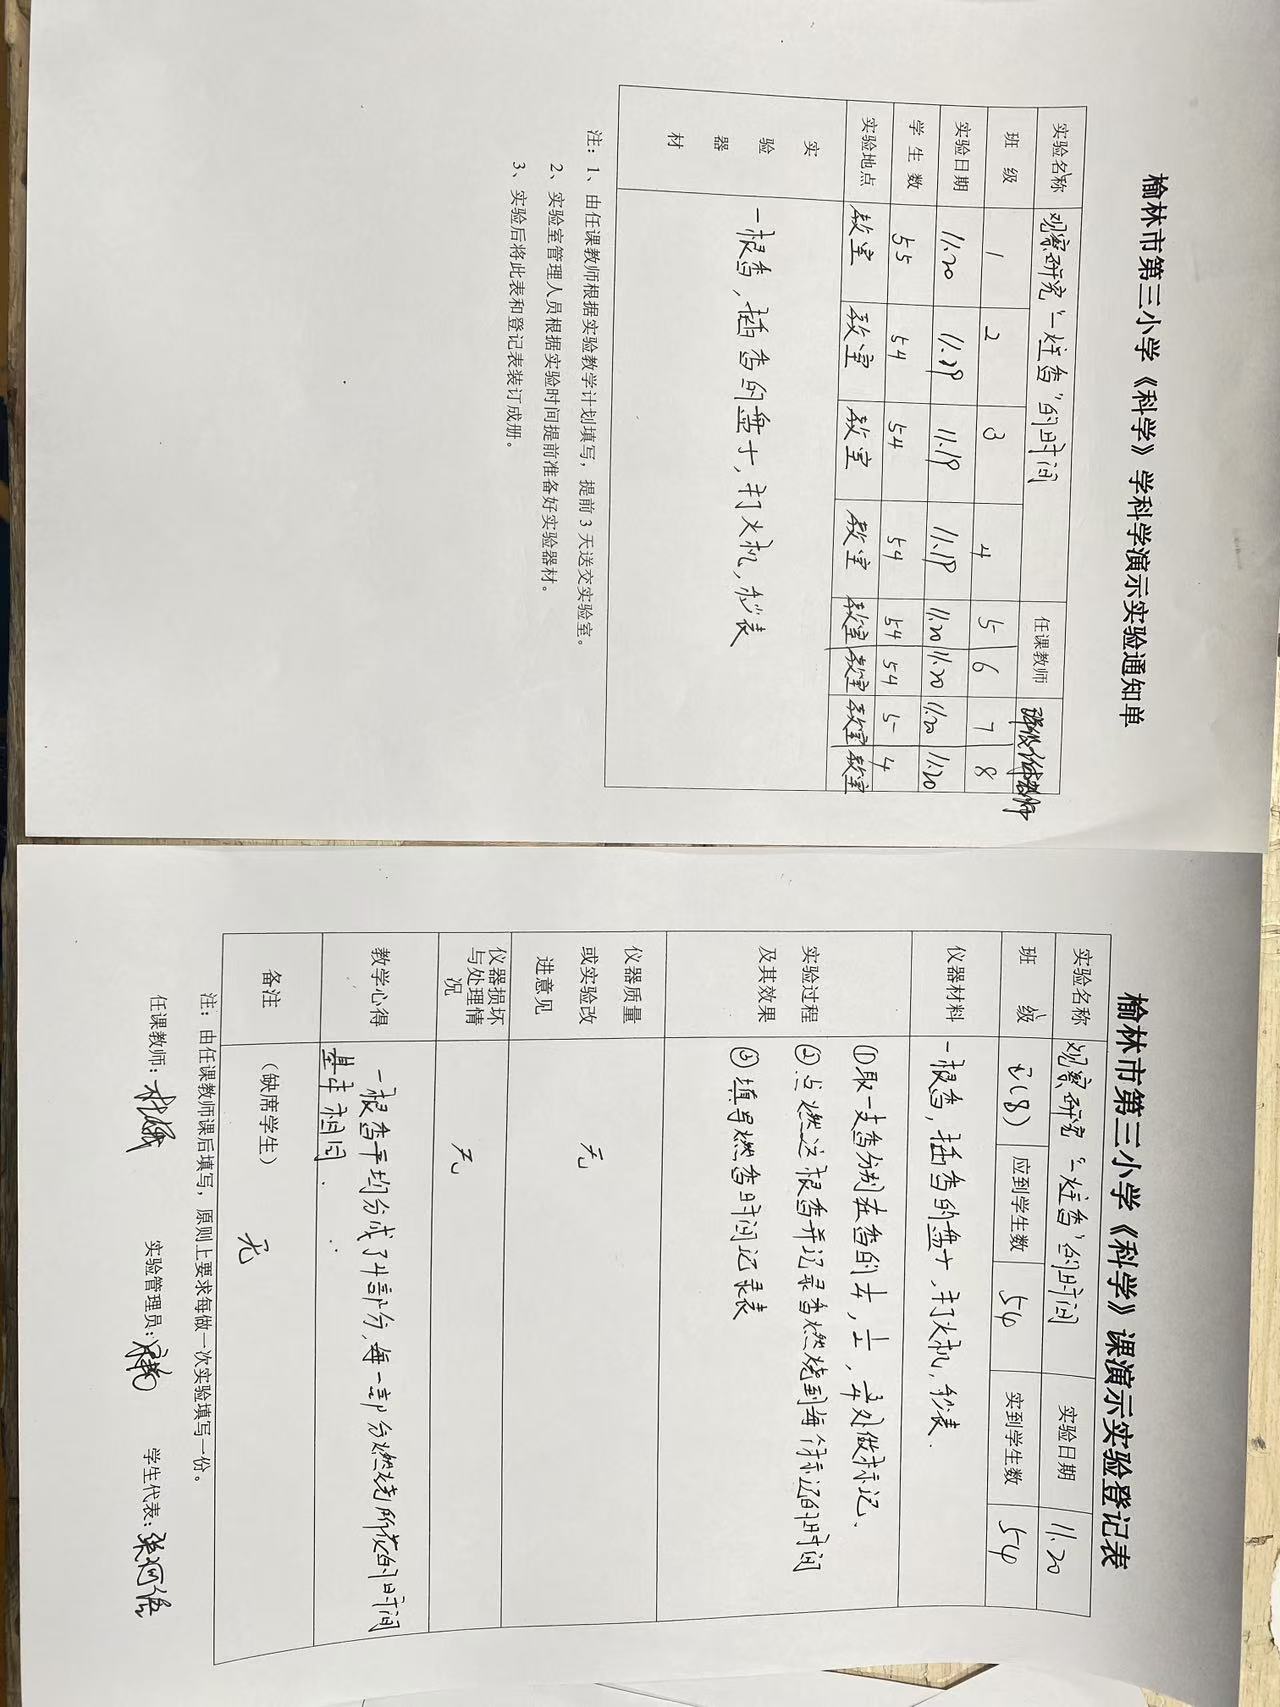 榆林市第三小学《科学》学科学演示实验通知单
实验名称 观察研究“一炷香”的时间 任课教师
班 级 1 2 3 4 5 6 7 8
实验日期 11.20 11.19 11.19 11.19 11.20 11.20 11.20 11.20
学 生 数 55 54 54 54 54 54 5 4
实验地点 教室 教室 教室 教室 教室 教室 教室 教室
实验器材 一根香，插香的盘子，打火机，秒表
注：1、由任课教师根据实验教学计划填写，提前 3 天送交实验室。
2、实验室管理人员根据实验时间提前准备好实验器材。
3、实验后将此表和登记表装订成册。
榆林市第三小学《科学》课演示实验登记表
实验名称 观察研究“一炷香”的时间 实验日期 11.20
班 级 五(8) 应到学生数 54 实到学生数 54
仪器材料 一根香，插香的盘子，打火机，秒表.
实验过程及其效果 ①取一支香分别在香的，，处做标记、
②点燃这根香并记录香燃烧到每个标记的时间
③填写燃香时间记录表
仪器质量或实验改进意见 无
仪器损坏与处理情况 无
教学心得 一根香平均分成了4部分，每一部分燃烧所花的时间
基本相同.
备注 （缺席学生） 无
注：由任课教师课后填写，原则上要求每做一次实验填写一份。
任课教师： 实验管理员： 学生代表：